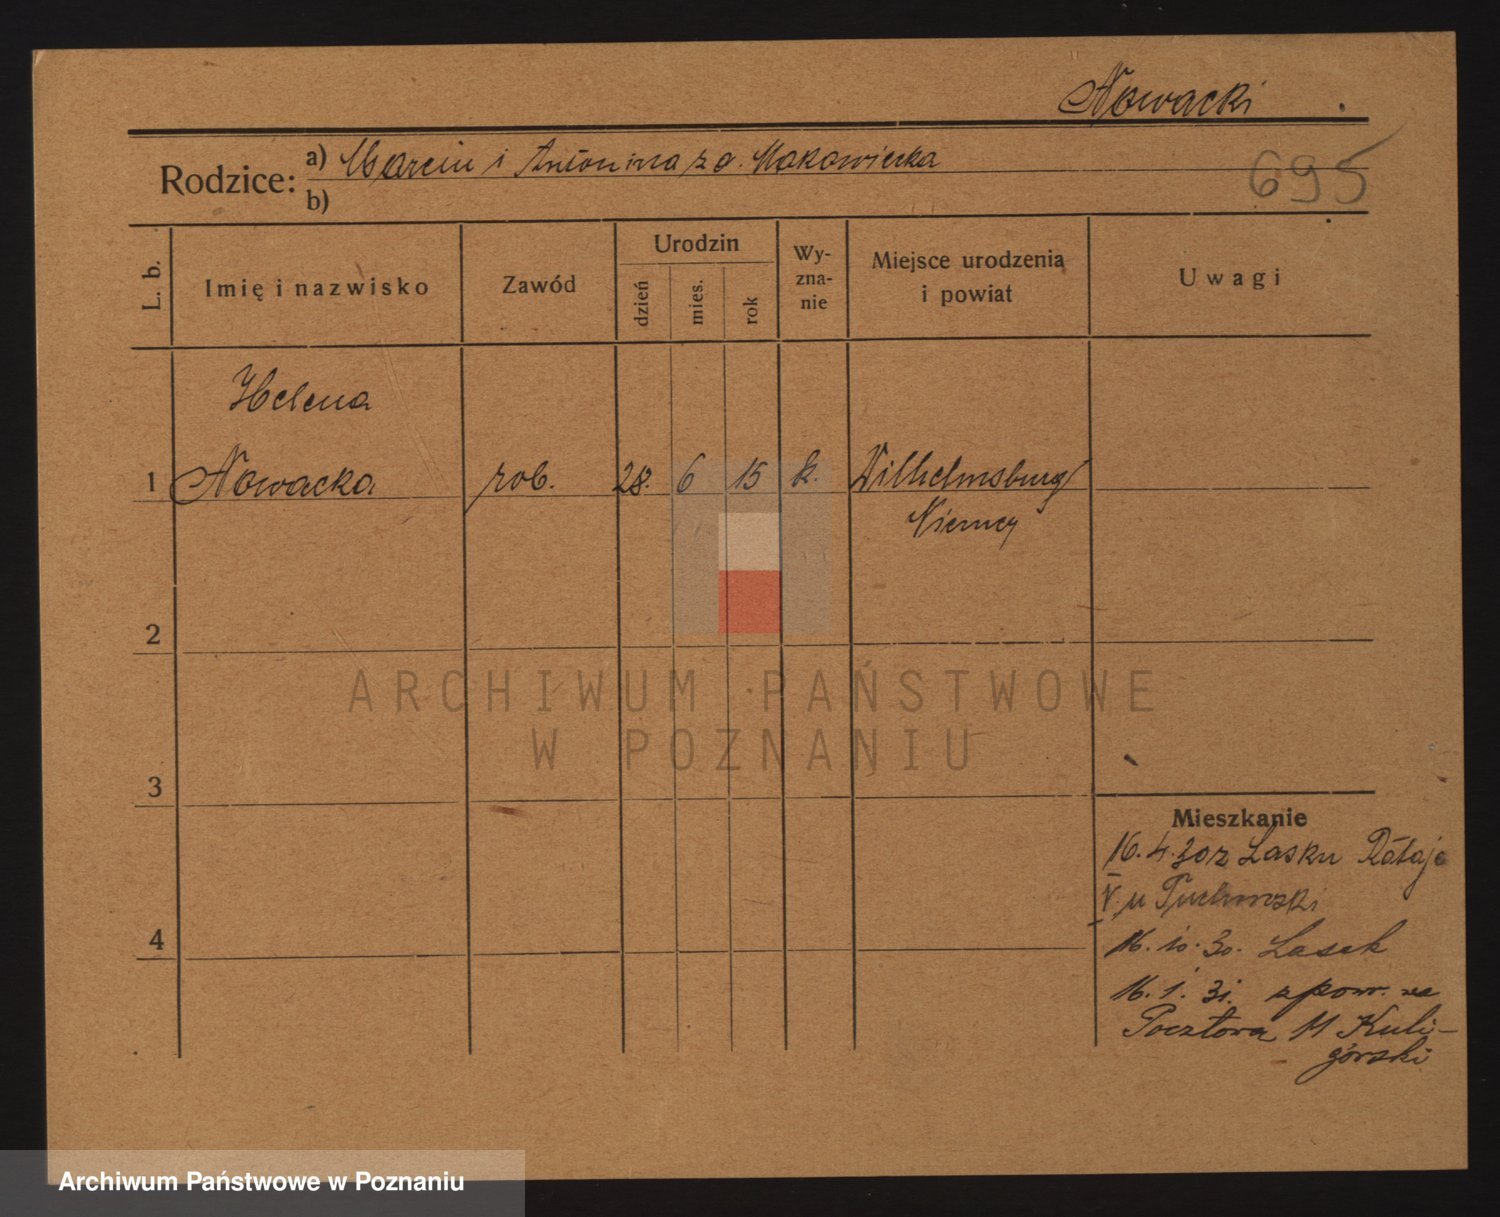 Nowacki
Rodzice: a) Marcin i Antonina z d. Makowiecka
b)
695
L. b.
Imię i nazwisko
Zawód
Urodzin
dzień
mies.
rok
Wy-
zna-
nie
Miejsce urodzenia
i powiat
Uwagi
Helena
1 Nowacka rob. 28. 6 15 k. Wilhelmsburg
Niemcy
2
3
4
ARCHIWUM PAŃSTWOWE
W POZNANIU
Mieszkanie
16. 4. 30 z Lasku Rataje
V. u
16. 10. 30. Lasek
16. 1. 31. z pow. na
Pocztowa 11 Kuli-
górski
Archiwum Państwowe w Poznaniu